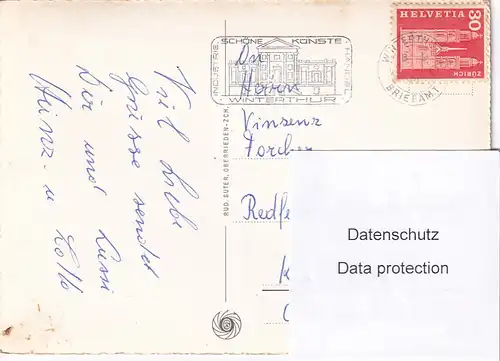 Viel Liebe
Grüsse sendet
Dir und Lussi
Heinz u Lotti
INDUSTRIE SCHÖNE KÜNSTE HANDEL
WINTERTHUR
HELVETIA
30
ZÜRICH
WINTERTHUR
BRIEFAMT
RUD. SUTER, OBERRIEDEN-ZCH.
An
Herrn
Vinzenz
Forcher
Datenschutz
Data protection